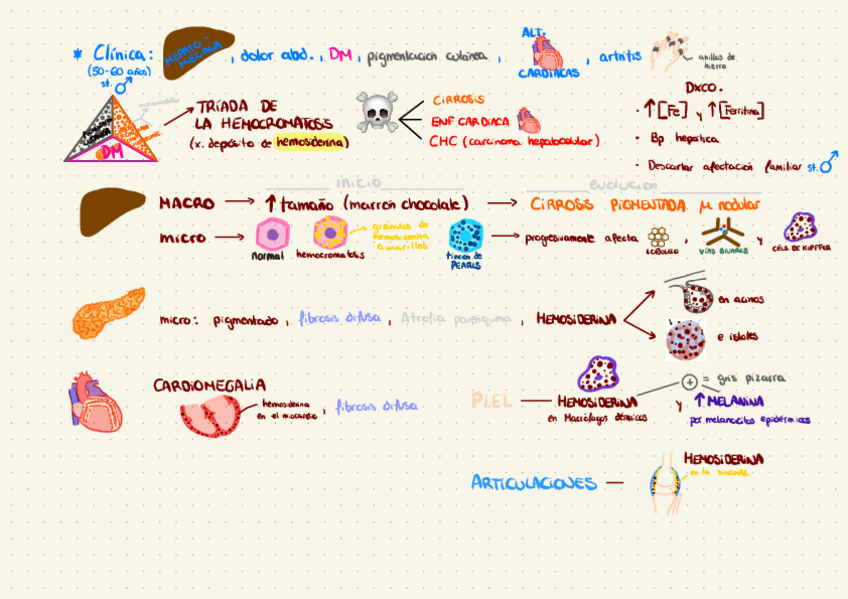 * Clínica:
(50-60 años)
st. ♂
HEPATO-
MEGALIA
, dolor abd., DM, pigmentación cutánea,
ALT.
CARDÍACAS
, artritis
anillos de
hierro
DM
TRÍADA DE
LA HEMOCROMATOSIS
(x. depósito de hemosiderina)
CIRROSIS
ENF CARDÍACA
CHC (carcinoma hepatocelular)
Dxco.
· ↑[Fe] y ↑[Ferritina]
· Bp hepática
· Descartar afectación familiar st. ♂
inicio
evolución
MACRO → ↑ tamaño (marrón chocolate) → CIRROSIS PIGMENTADA μ nodular
micro →
normal
hemocromatosis
gránulos de
hemosiderina
amarillos
tinción de
PEARLS
→ progresivamente afecta
LOBULILLO
,
VÍAS BILIARES
y
CÉLS. DE KUPFFER
micro: pigmentado, fibrosis difusa, Atrofia parénquima, HEMOSIDERINA
en acinos
e islotes
CARDIOMEGALIA
hemosiderina
en el miocardio
, fibrosis difusa
PIEL — HEMOSIDERINA
en Macrófagos dérmicos
y ↑ MELANINA
por melanocitos epidérmicos
+ = gris pizarra
ARTICULACIONES —
HEMOSIDERINA
en la sinovial